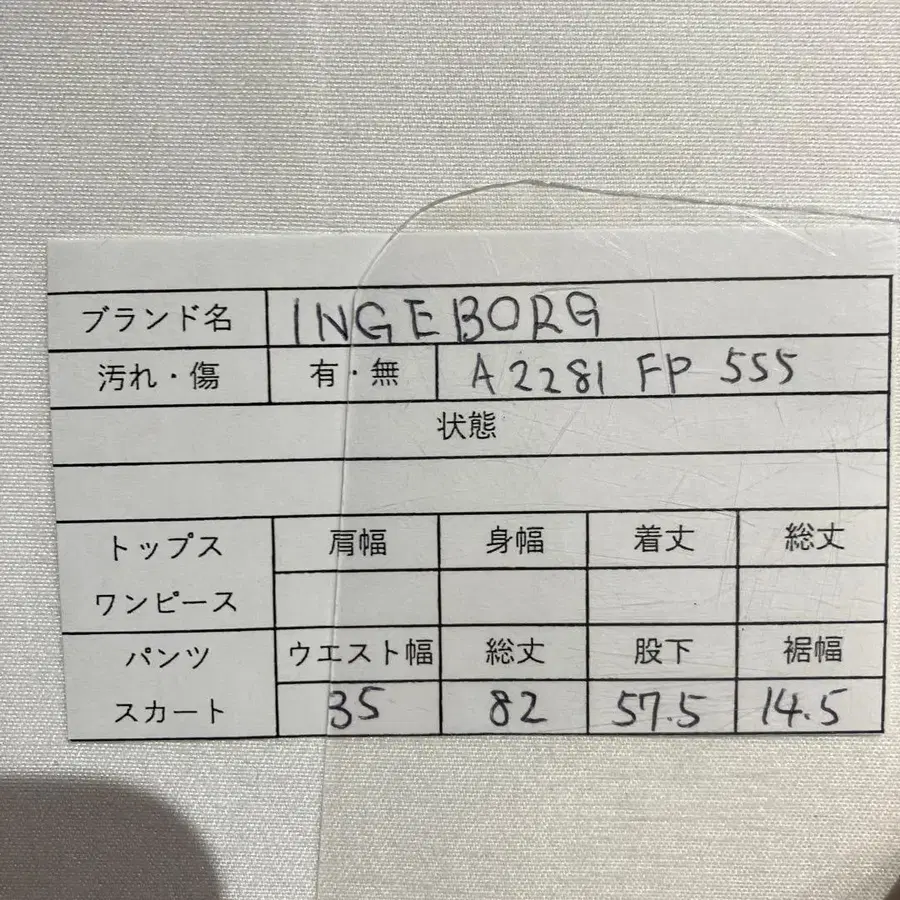 ブランド名 INGEBORG
汚れ・傷 有・無 A2281 FP 555
状態
トップス 肩幅 身幅 着丈 総丈
ワンピース
パンツ ウエスト幅 総丈 股下 裾幅
スカート 35 82 57.5 14.5